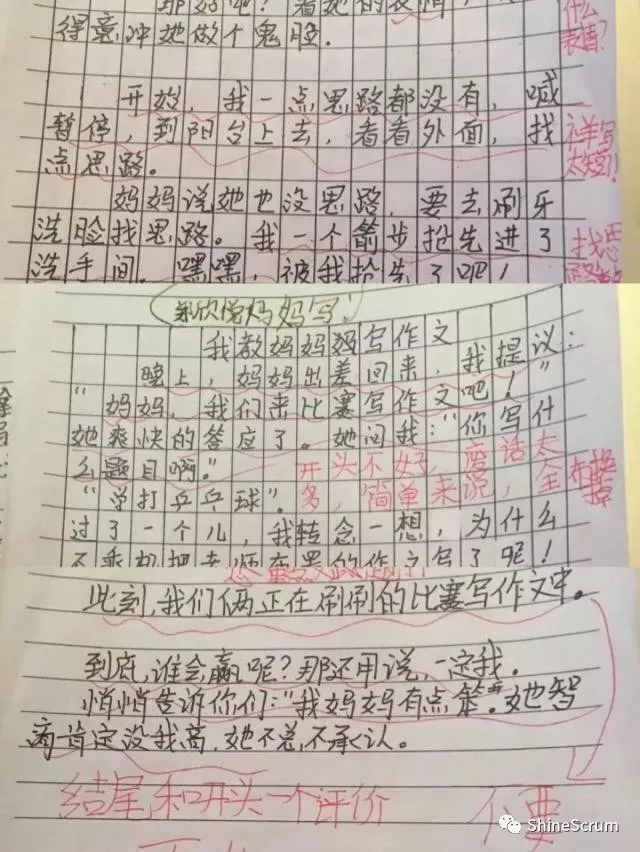 那好吧？看她的表情，
什么
表情？
得意冲她做个鬼脸。
开始，我一点思路都没有，喊
暂停，到阳台上去，看看外面，找
点思路。
太短了！
妈妈说她也没思路，要去刷牙
洗脸找思路。我一个箭步抢先进了
洗手间。嘿嘿，被我抢先了吧！
找思
欣悦妈妈写！
我教妈妈妈写作文
晚上，妈妈出差回来，我提议：
“妈妈，我们来比赛写作文吧！”
她爽快的答应了。她问我：“你写什
么题目啊。”
开头不好，废话太
“学打乒乓球”。
多，简单来说，全
换掉
过了一个儿，我转念一想，为什么
不乘机把老师布置的作文写了呢！
此刻，我们俩正在刷刷的比赛写作文中。
到底，谁会赢呢？那还用说，一定我。
悄悄告诉你们：“我妈妈有点笨”。她智
商肯定没我高，她不总，不承认。
结尾和开头一个评价
不要
ShineScrum